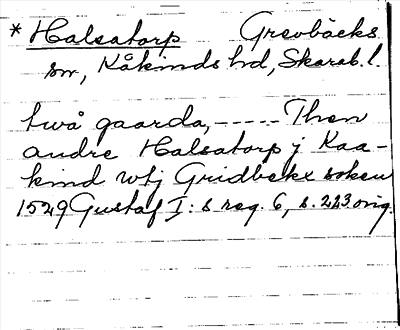 * Halsatorp Grevbäcks
sn, Kåkinds hd, Skarab. l.
twå gaarda, ----- Then
andre Halsatorp j Kaa-
kind wtj Gridbekx soken
1529 Gustaf I:s reg. 6, s. 223 orig.